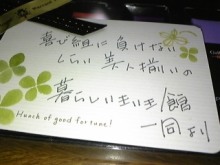 喜び組に負けない
くらい美人揃いの
暮らしい
館
一同より
Hunch of good fortune!